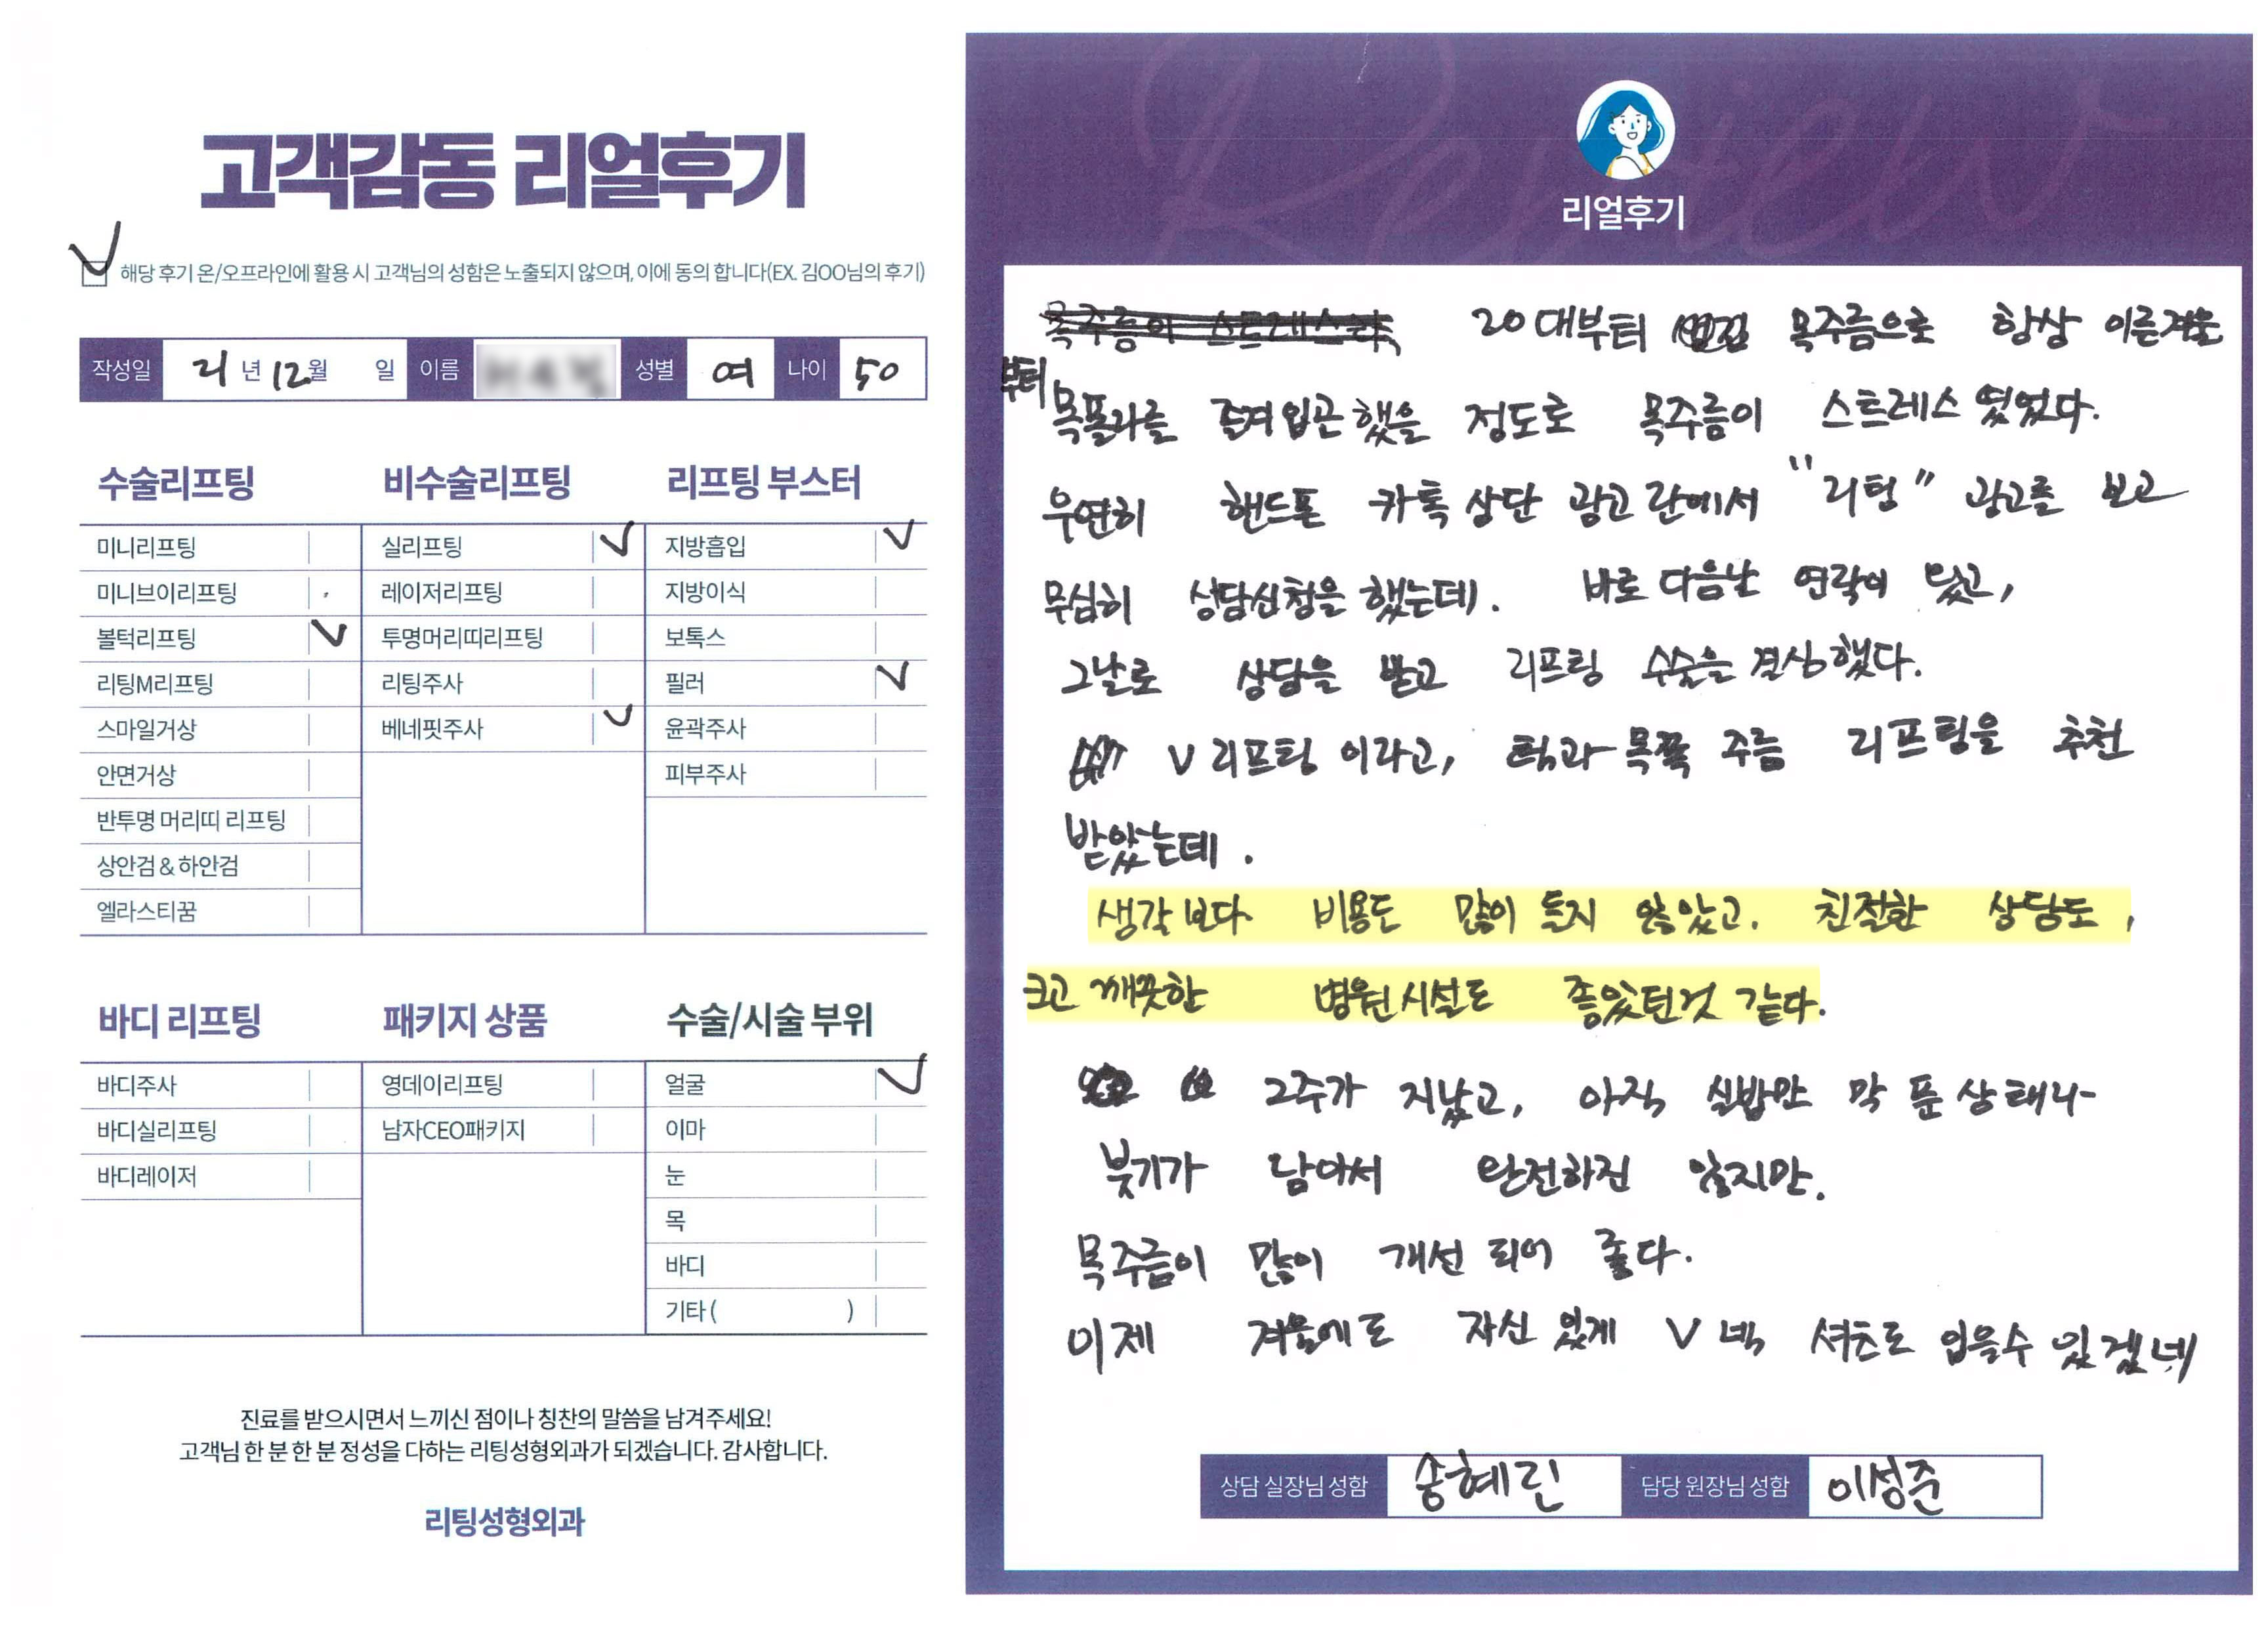 고객감동 리얼후기
해당 후기 온/오프라인에 활용 시 고객님의 성함은 노출되지 않으며, 이에 동의 합니다(EX. 김OO님의 후기)
작성일 21년 12월 일 이름 성별 여 나이 50
수술리프팅
미니리프팅
미니브이리프팅
볼턱리프팅
리팅M리프팅
스마일거상
안면거상
반투명 머리띠 리프팅
상안검 & 하안검
엘라스티꿈
비수술리프팅
실리프팅
레이저리프팅
투명머리띠리프팅
리팅주사
베네핏주사
리프팅 부스터
지방흡입
지방이식
보톡스
필러
윤곽주사
피부주사
바디 리프팅
바디주사
바디실리프팅
바디레이저
패키지 상품
영데이리프팅
남자CEO패키지
수술/시술 부위
얼굴
이마
눈
목
바디
기타 ( )
진료를 받으시면서 느끼신 점이나 칭찬의 말씀을 남겨주세요!
고객님 한 분 한 분 정성을 다하는 리팅성형외과가 되겠습니다. 감사합니다.
리팅성형외과
Review
리얼후기
목주름이 스트레스라
20대부터 생긴 목주름으로 항상 이른겨울
부터 목폴라를 즐겨입곤 했을 정도로 목주름이 스트레스 였었다.
우연히 핸드폰 카톡 상단 광고란에서 "리팅" 광고를 보고
무심히 상담신청을 했는데. 바로 다음날 연락이 왔고,
그날로 상담을 받고 리프팅 수술을 결심했다.
V 리프팅 이라고, 턱과 목쪽 주름 리프팅을 추천
받았는데.
생각보다 비용도 많이 들지 않았고. 친절한 상담도,
크고 깨끗한 병원시설도 좋았던것 같다.
2주가 지났고, 아직 실밥만 막 푼 상태라
붓기가 남아서 완전하진 않지만.
목주름이 많이 개선 되어 좋다.
이제 겨울에도 자신 있게 V넥 셔츠도 입을수 있겠네
상담 실장님 성함 송혜린 담당 원장님 성함 이성준